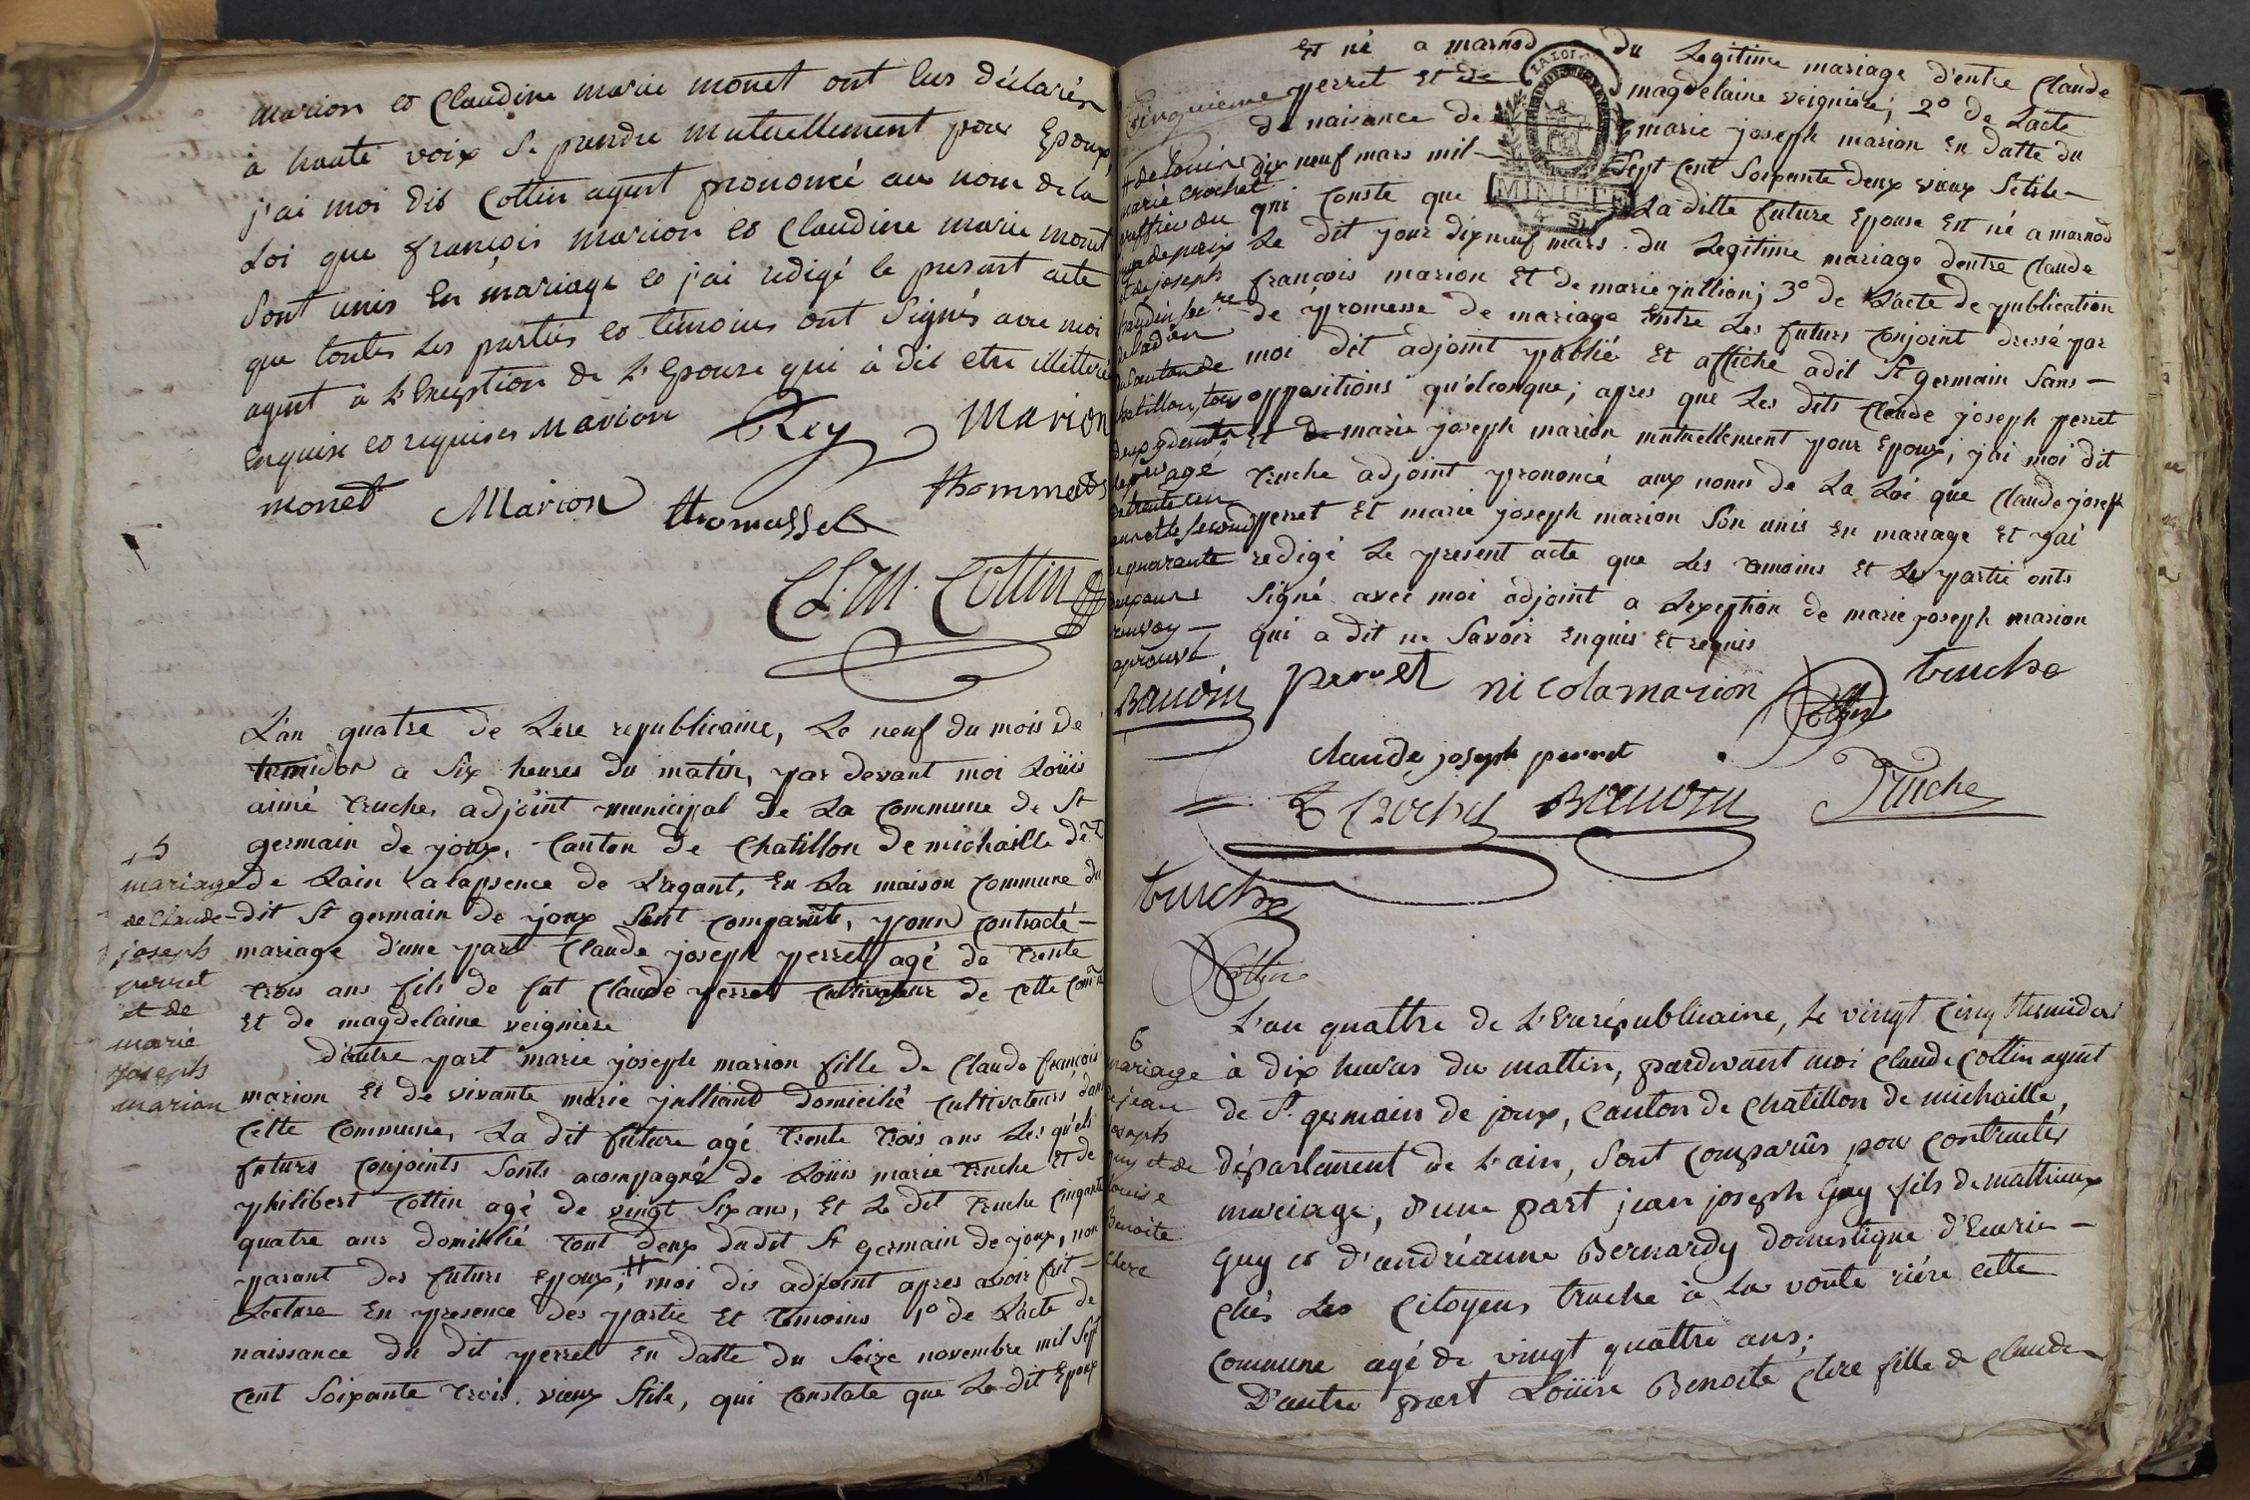 marion et Claudine marie monet ont lus déclarés
à haute voix se prendre mutuellement pour Epoux,
j'ai moi dit Cottin agent prononcé au nom de la
Loi que françois marion et Claudine marie monet
sont unis En mariage et j'ai redigé le present acte
que toutes les parties et temoins ont signés avec moi
agent à L'Exeption de L'Epouse qui à dit etre illitteré
Enquise et requises Marion Rey Marion
monet Marion thomasset thommasset
Cl. M. Cottin
L'an quatre de Lere republicaine, Le neuf du mois de
termidor a six heures du matin, par devant moi Loüis
aimé truche, adjoint municipal de La Commune de St
germain de joux, Canton de Chatillon de michaille de
de Lain a lapsence de Lagant, En La maison Commune du
dit St germain de joux sont comparûts, pour contracté-
mariage d'une part Claude joseph perret agé de trente
trois ans fils de fut Claude perret Cultivateur de cette Comne
Et de magdelaine veigniere
5
mariage
de Claude-
joseph
perret
et de
marie
joseph
marion
d'autre part marie joseph marion fille de Claude françois
marion Et de vivante marie julliand domicilié Cultivateurs dans
Cette Commune, La dit future agé trente trois ans Les qu'els
futurs Conjoints sonts acompagné de Loüis marie truche Et de
philibert Cottin agé de vingt six ans, Et Le dit truche cinqante
quatre ans domicilié tout deux dudit St germain de joux, non
parant des futurs Epoux, # moi dis adjoint apres avoir fait-
Lecture En presence des partie Et temoins 1º de L'acte de
naissance du dit perret En datte du seize novembre mil sept
Cent soixante trois vieux stile, qui Constate que Le dit Epoux
Est né a marnod du Legitime mariage d'entre Claude
Cinquieme
perret Et de magdelaine veigniere; 2º de Lacte
de naisance de marie joseph marion En datte du
dix neuf mars mil- sept Cent soixante deux vieux Stile-
qui Conste que La ditte future Epouse Est né a marnod
LA LOI
MINUTE
4 S
Le dit jour dix neuf mars du Legitime mariage dentre Claude
françois marion Et de marie jullion; 3º de L'acte de publication
de promesse de mariage Entre Les futurs Conjoint dressé par
moi dit adjoint publié Et affiché adit St germain sans-
oppositions qu'elconque; apres que Les dits Claude joseph perret
Et de marie joseph marion mutuellement pour Epoux, j'ai moi dit
truche adjoint prononcé aux noms de La Loi que Claude joseph
perret Et marie joseph marion son unis En mariage Et j'ai
redigé Le present acte que Les temoins Et Les partie onts
signé avec moi adjoint a Lexeption de marie joseph marion
qui a dit ne savoir Enquis Et requis
# de Louis
marie Crochet
officier du
juge de paix
et de joseph
baudin Secre
de l'adon
du Canton de
chatillon, tous
agé
de trente un
ans et le second
de quarante
deux ans
renvoy-
aprouvé
Baudin perret nicola marion Cottin truche
claude joseph perret
L Crochet Baudin Truche
truche
Cottin
L'an quattre de L'Ere républicaine, le vingt cinq thermidor
à dix heures du mattin, pardevant moi Claude Cottin agent
de St. germain de joux, Canton de chatillon de michaille,
département de L'ain, sont comparûs pour contracter
mariage, d'une part jean joseph Guy fils de mathieux
Guy et d'andréanne Bernardy domestique d'Ecurie-
chés les Citoyens truche à la voute rière cette
commune agé de vingt quattre ans;
D'autre part Loüise Benoite clere fille de claude
6
mariage
de jean
joseph
guy et de
Louise
Benoite
clere